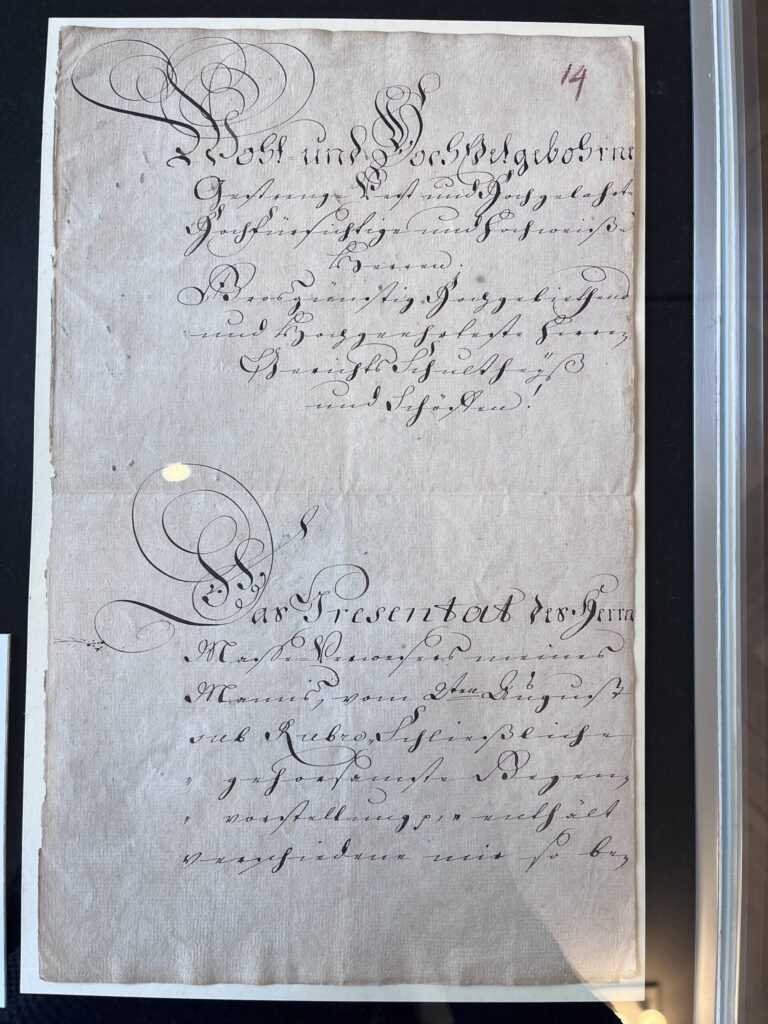 14
Wohl- und HochEdelgebohrne
Gestrenge Vest und Hochgelahrte
Hochfürsichtige und Hochweiße
Herren.
Grosgünstig Hochgebiethend
und Hochgeehrteste Herren
Gerichts Schultheyß
und Schöffen!
Das Presentat des Herrn
Masse-Verwesers meines
Manns, vom 2ten August
sub Rubro, Schließliche
" gehorsamste Gegen-
" vorstellung p, " enthält
verschiedene mir so be-